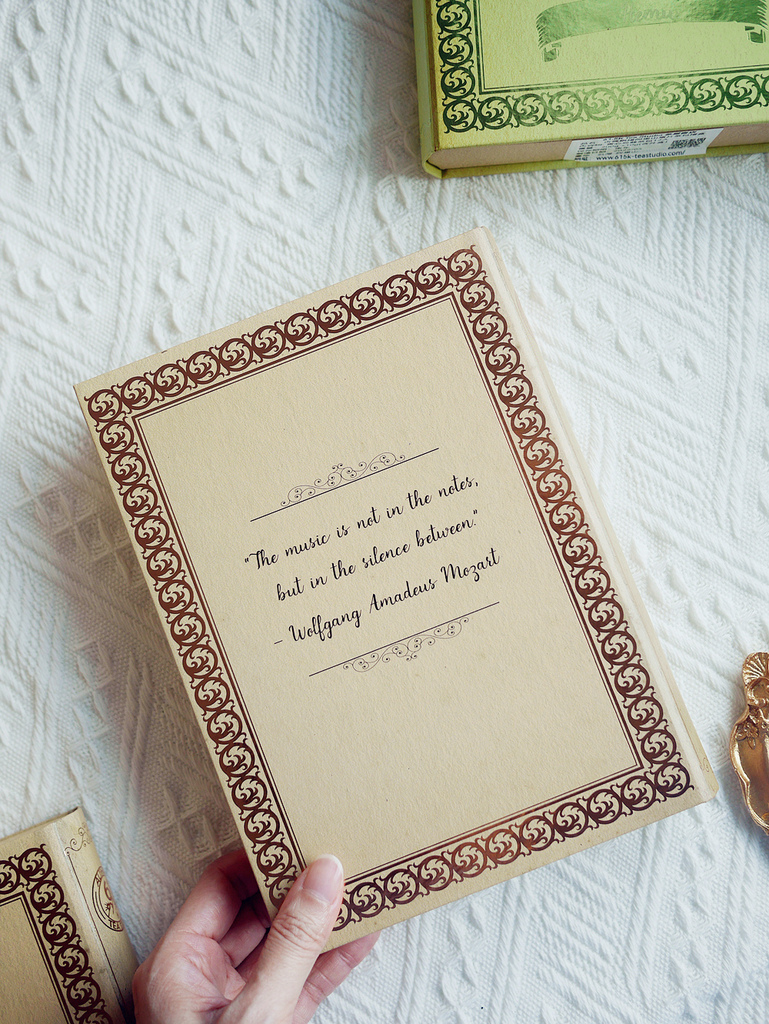 www.618k-teastudio.com/
"The music is not in the notes,
but in the silence between."
- Wolfgang Amadeus Mozart
TEA